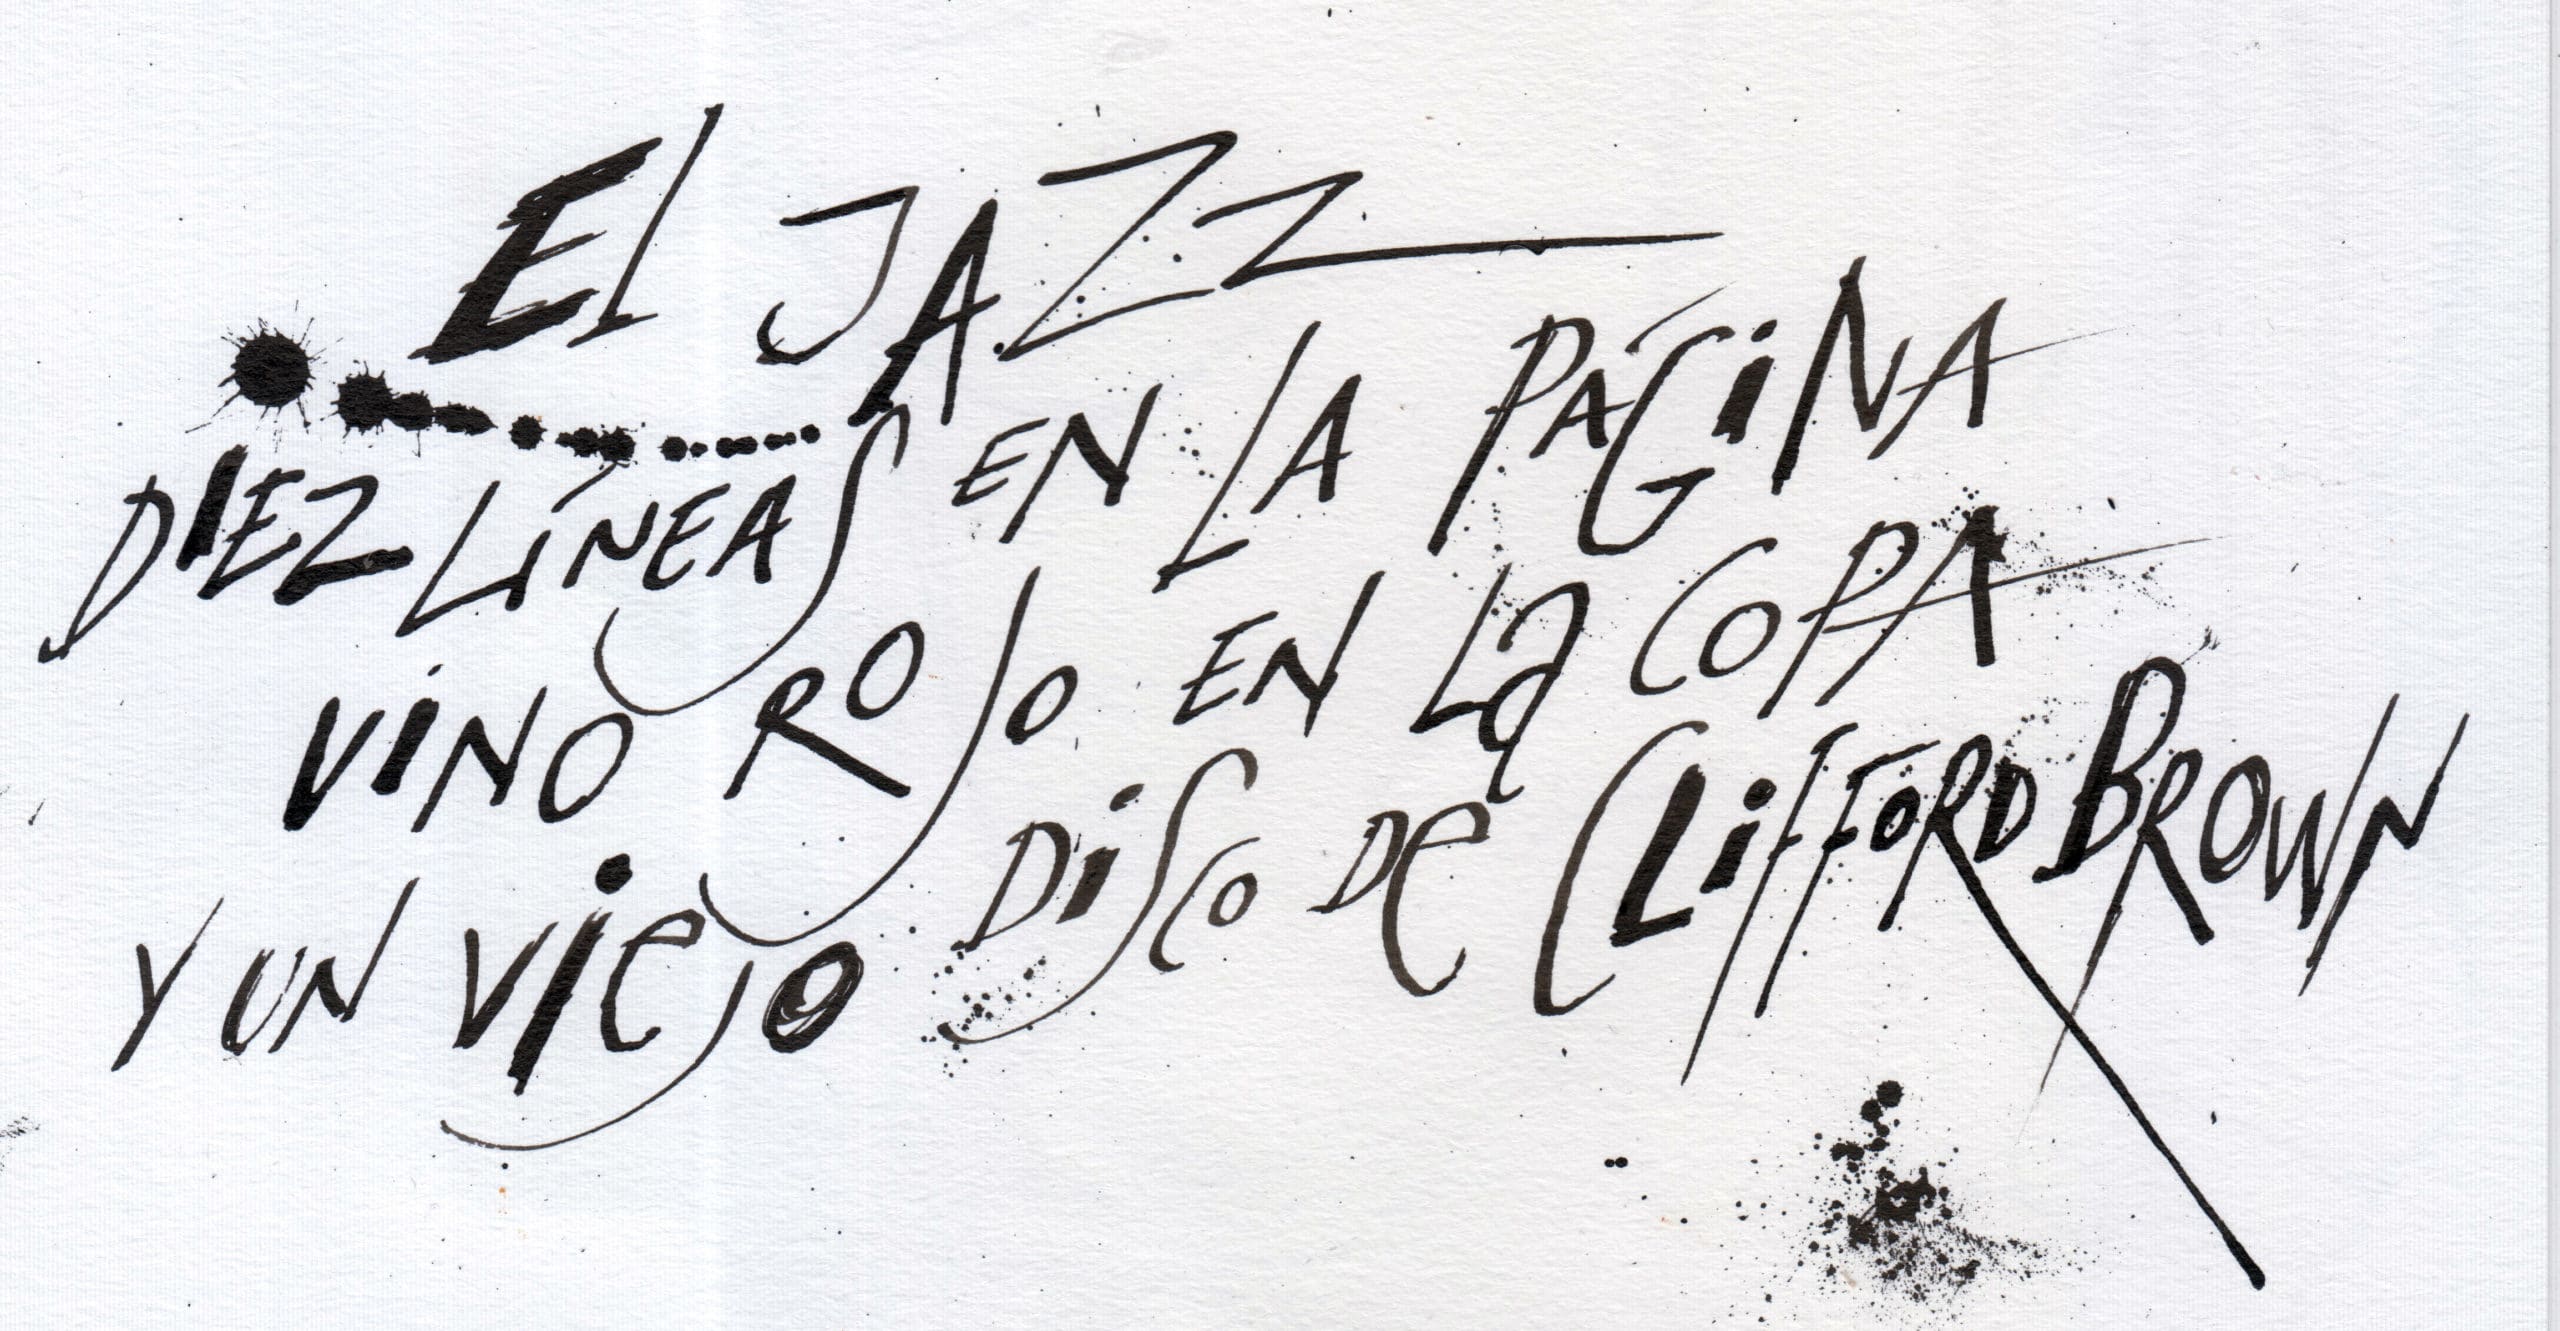 El JAZZ
DIEZ LÍNEAS EN LA PÁGINA
VINO ROJO EN LA COPA
Y UN VIEJO DISCO DE CLIFFORD BROWN